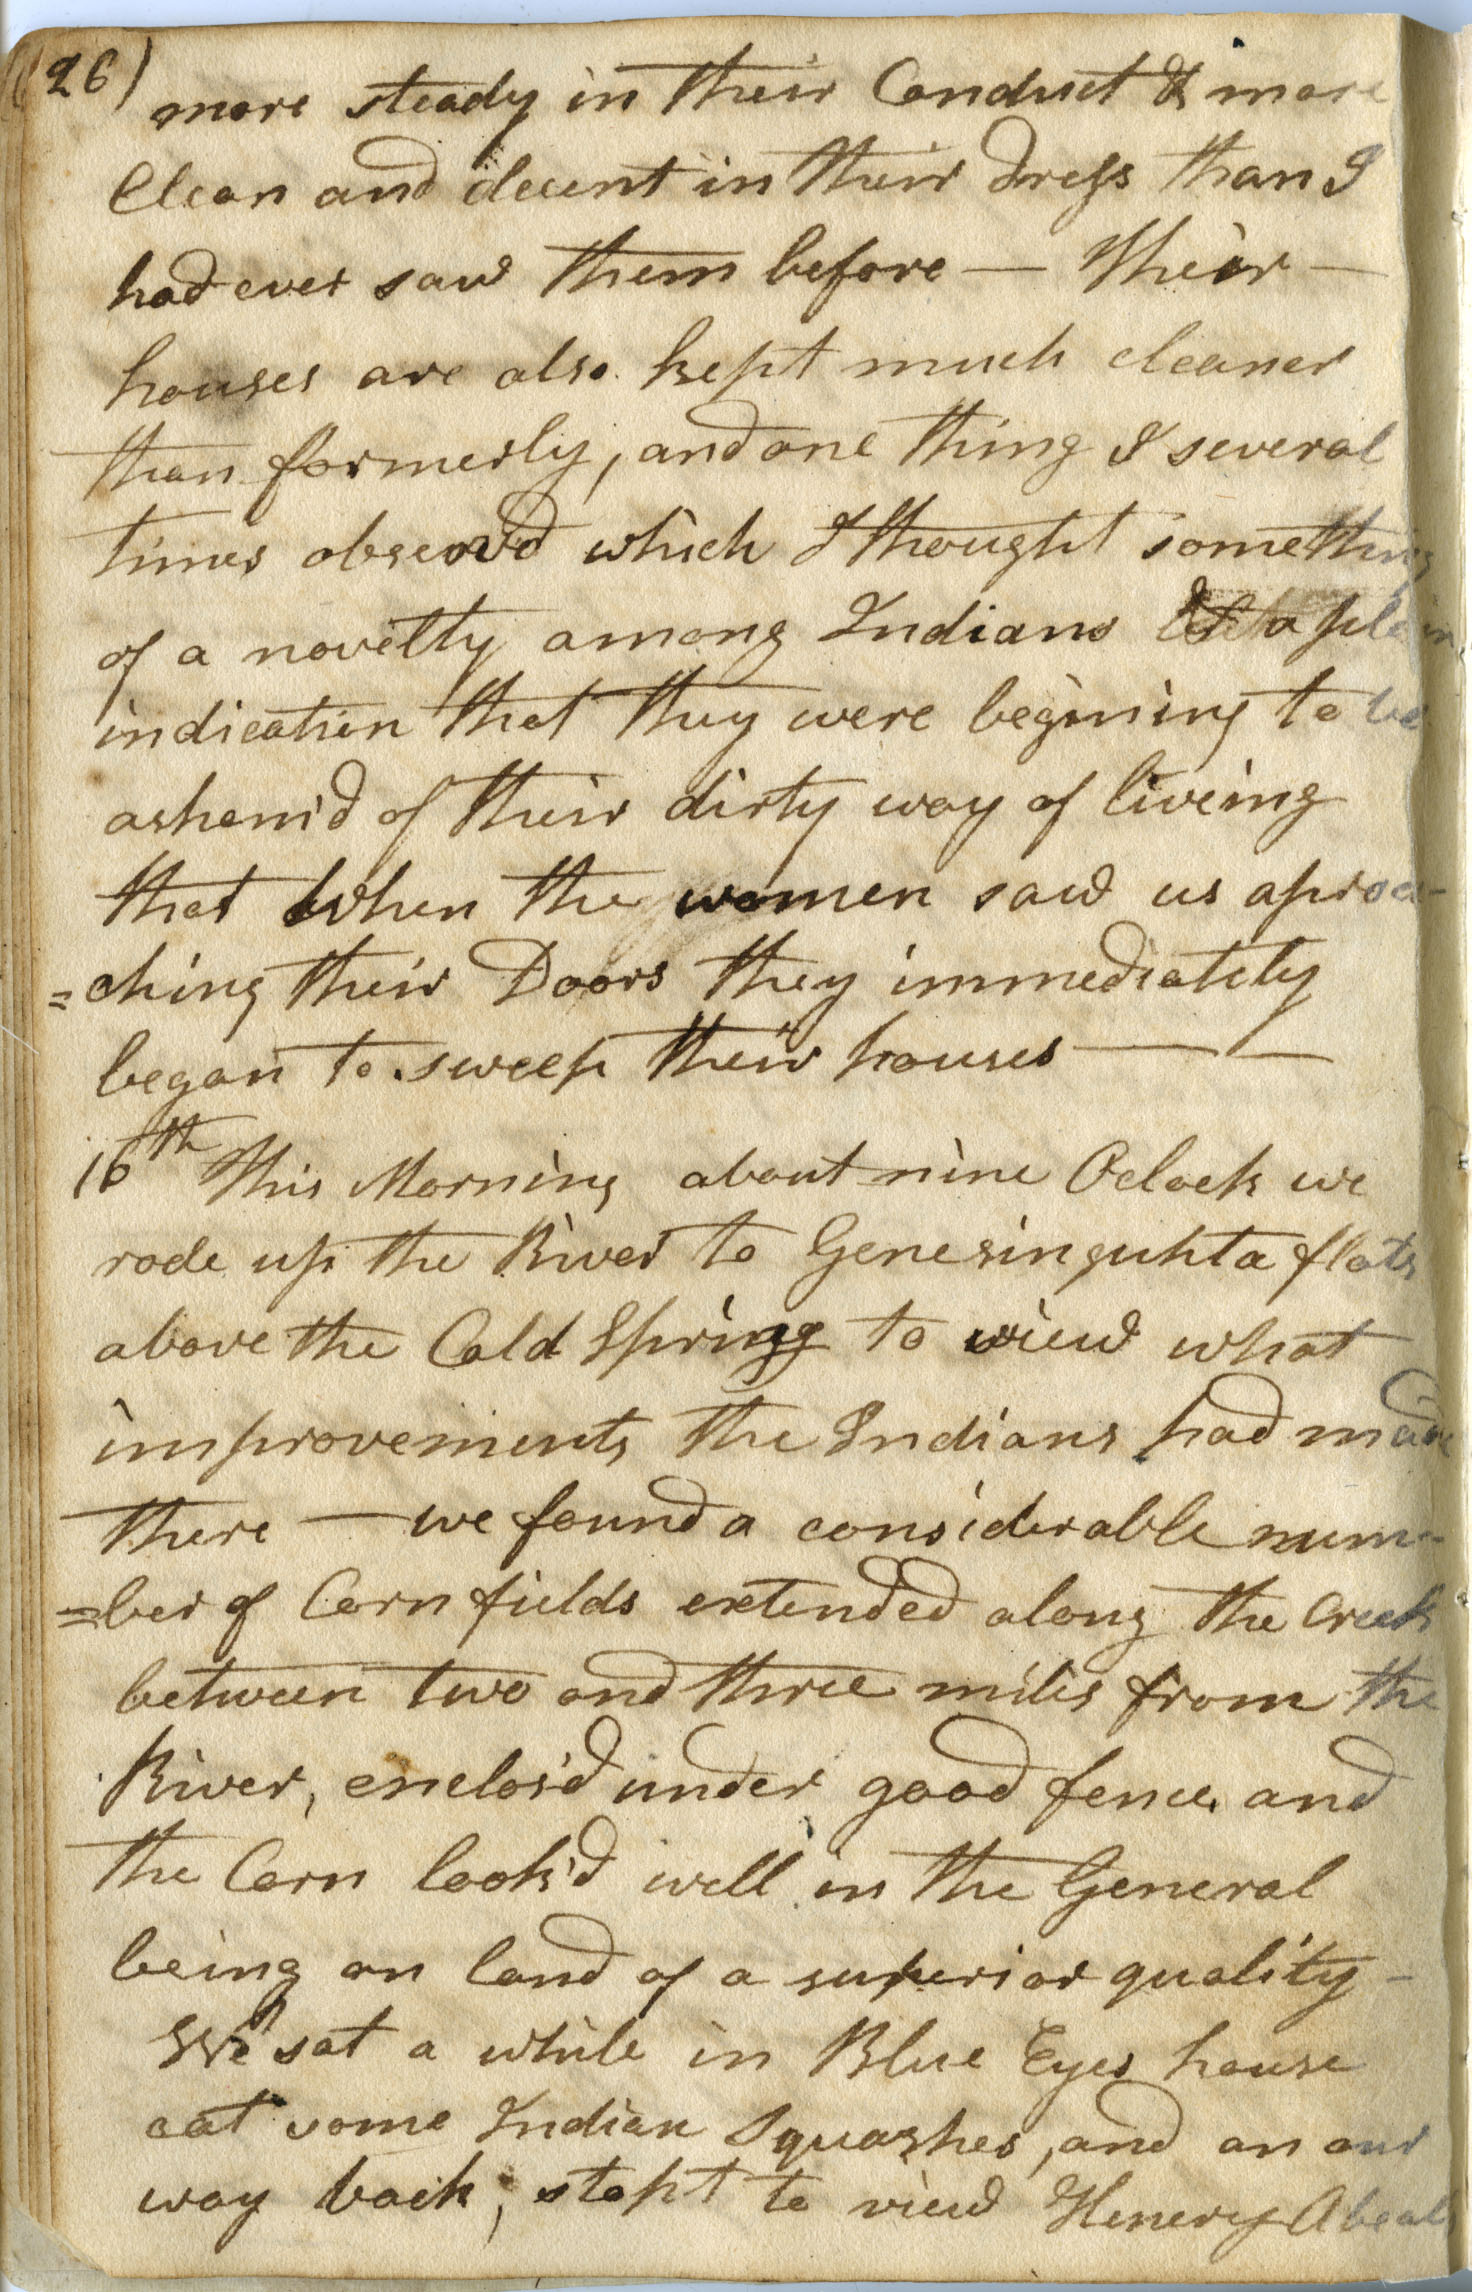 26)
more steady in their Conduct & more
Clean and decent in their dress than I
had ever saw them before — Their —
houses are also kept much cleaner
than formerly, and one thing I several
times observ'd which I thought something
of a novelty among Indians & a plain
indication that they were begining to be
asham'd of their dirty way of liveing
that when the women saw us aproa-
=ching their Doors they immediately
began to sweep their houses — —
16th This Morning about nine Oclock we
rode up the River to Genesinguhta flats
above the Cold Spring to view what
improvements the Indians had made
there — we found a considerable num-
=ber of Cornfields extended along the Creek
between two and three miles from the
River, enclos'd under good fence and
the Corn look'd well in the General
being on land of a superior quality –
We sat a while in Blue Eyes house
eat some Indian Squashes, and on our
way back, stopt to view Henery Abeals